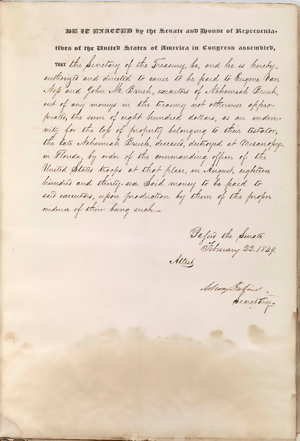 BE IT ENACTED by the Senate and House of Representa-
tives of the United States of America in Congress assembled,
THAT the Secretary of the Treasury, be, and he is hereby,
authorized and directed to cause to be paid to Eugene Van
Ness and John M. Brush, executors of Nehemiah Brush,
out of any moneys in the treasury not otherwise appro-
priated, the sum of eight hundred dollars, as an indem-
nity for the loss of property belonging to their testator,
the late Nehemiah Brush, deceased, destroyed at Micanopy,
in Florida, by order of the commanding officer of the
United States troops at that place, in August, eighteen
hundred and thirty-six. Said money to be paid to
said executors, upon production by them of the proper
evidence of their being such.
Passed the Senate
February 22. 1849.
Attest,
Secretary.